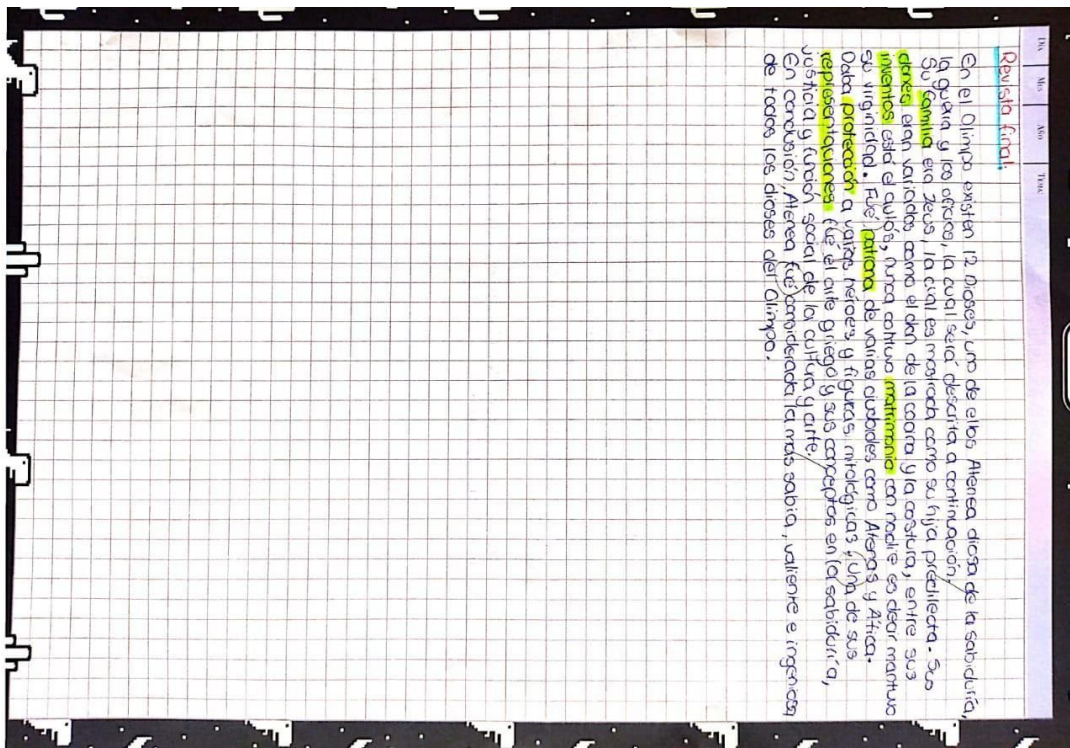 DÍA MES AÑO TEMA:
Revista final:
En el Olimpo existen 12 Dioses, uno de ellos Atenea diosa de la sabiduría,
la guerra y los oficios, la cual será descrita a continuación.
Su familia era Zeus, la cual es mostrada como su hija predilecta. Sus
dones eran variados como el don de la cocina y la costura, entre sus
inventos está el aulós, nunca contuvo matrimonio con nadie es decir mantuvo
su virginidad. Fué patrona de varias ciudades como Atenas y Ática.
Daba protección a varios héroes y figuras mitológicas, una de sus
representaciones fué el arte griego y sus conceptos en la sabiduría,
justicia y función social de la cultura y arte.
En conclusión, Atenea fué considerada la más sabia, valiente e ingeniosa
de todos los dioses del Olimpo.